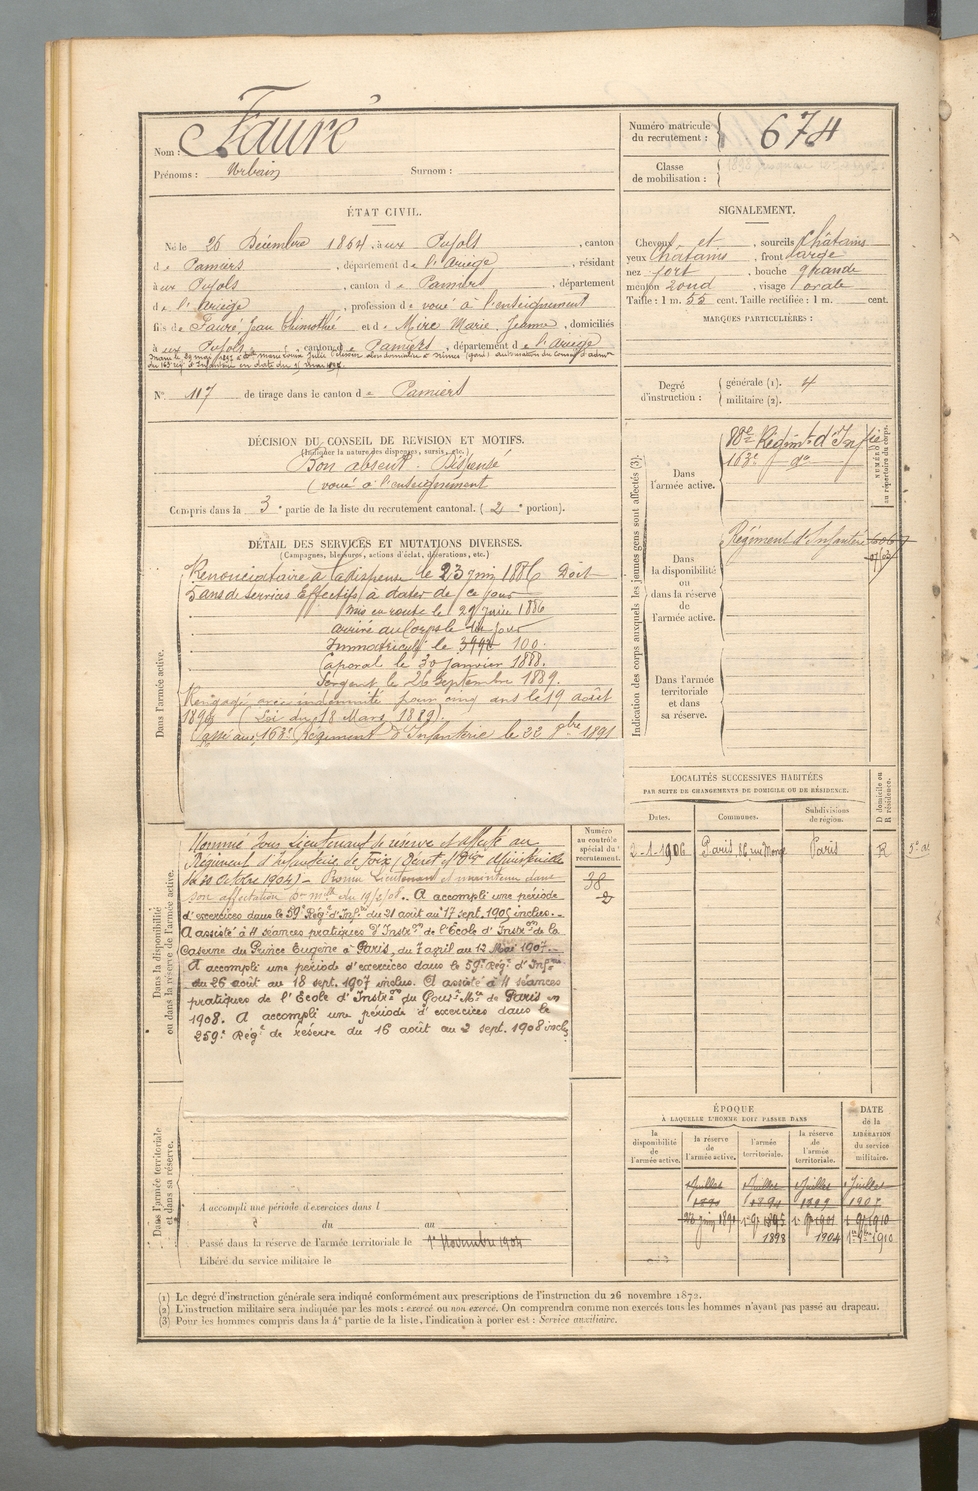 Nom : Fauré
Prénoms : Urbain Surnom :
Numéro matricule du recrutement : 674
Classe de mobilisation :
ÉTAT CIVIL.
Né le 26 Décembre 1864, à aux Pujols, canton
de Pamiers, département de l'Ariège, résidant
à aux Pujols, canton de Pamiers, département
de l'Ariège, profession de voué à l'enseignement
fils de Fauré, Jean Thimothé et de Mire Marie Jeanne, domiciliés
à aux Pujols, canton de Pamiers, département de l'Ariège
N° 117 de tirage dans le canton de Pamiers
SIGNALEMENT.
Cheveux et, sourcils Châtains
yeux Châtains, front large
nez fort, bouche grande
menton rond, visage ovale
Taille : 1 m. 55 cent. Taille rectifiée : 1 m. cent.
MARQUES PARTICULIÈRES :
Degré d'instruction : générale (1). 4
militaire (2).
DÉCISION DU CONSEIL DE REVISION ET MOTIFS.
(Indiquer la nature des dispenses, sursis, etc.)
Bon absent. Dispensé
(voué à l'enseignement
Compris dans la 3e partie de la liste du recrutement cantonal. (2e portion).
DÉTAIL DES SERVICES ET MUTATIONS DIVERSES.
(Campagnes, blessures, actions d'éclat, décorations, etc.)
Dans l'armée active.
Renonciataire à la dispense le 23 juin 1886 Doit
5 ans de services Effectifs à dater de ce jour
mis en route le 29 Juin 1886
arrivé au Corps le dit jour
Immatriculé le 100
Caporal le 30 janvier 1888.
Sergent le 26 Septembre 1889.
Rengagé avec indemnité pour cinq ans le 19 août
(Loi du 18 Mars 1889).
Passé au 163e Régiment d'Infanterie le 22 8bre 1891
Dans la disponibilité ou dans la réserve de l'armée active.
Nommé Sous Lieutenant de réserve et affecté au
Régiment d'infanterie de Foix (Décret
du 30 octobre 1904) - Promu Lieutenant et maintenu dans
son affectation A accompli une période
d'exercices dans le 59e Régt d'Infie du 21 août au 17 sept. 1905 inclus.-
A assisté à 4 séances pratiques d'Instron de l'École d'Instron de la
Caserne du Prince Eugène à Paris, du 7 avril au 12 Mai 1907.-
A accompli une période d'exercices dans le 59e Régt d'Infie
du 26 août au 18 sept. 1907 inclus. A assisté à 11 séances
pratiques de l'École d'Instron du Gouvt Mre de Paris en
1908. A accompli une période d'exercices dans le
259e Régt de réserve du 16 août au 2 sept. 1908 incls
Numéro au contrôle spécial du recrutement.
38
Dans l'armée territoriale et dans sa réserve.
A accompli une période d'exercices dans l
du au
Passé dans la réserve de l'armée territoriale le 1er Novembre 1904
Libéré du service militaire le
Indication des corps auxquels les jeunes gens sont affectés (3).
NUMÉRO au répertoire du corps.
Dans l'armée active.
88e Régimt d'Infie
163e do
Dans la disponibilité ou dans la réserve de l'armée active.
Régiment d'Infanterie
Dans l'armée territoriale et dans sa réserve.
LOCALITÉS SUCCESSIVES HABITÉES
PAR SUITE DE CHANGEMENTS DE DOMICILE OU DE RÉSIDENCE.
Dates. Communes. Subdivisions de région. D domicile ou R résidence.
2-1-1906 Paris 86 rue Monge Paris R
ÉPOQUE
À LAQUELLE L'HOMME DOIT PASSER DANS
la disponibilité de l'armée active. la réserve de l'armée active. l'armée territoriale. la réserve de l'armée territoriale.
DATE de la LIBÉRATION du service militaire.
Juillet Juillet Juillet Juillet
1907
1898 1904 1910
(1) Le degré d'instruction générale sera indiqué conformément aux prescriptions de l'instruction du 26 novembre 1872.
(2) L'instruction militaire sera indiquée par les mots : exercé ou non exercé. On comprendra comme non exercés tous les hommes n'ayant pas passé au drapeau.
(3) Pour les hommes compris dans la 4e partie de la liste, l'indication à porter est : Service auxiliaire.